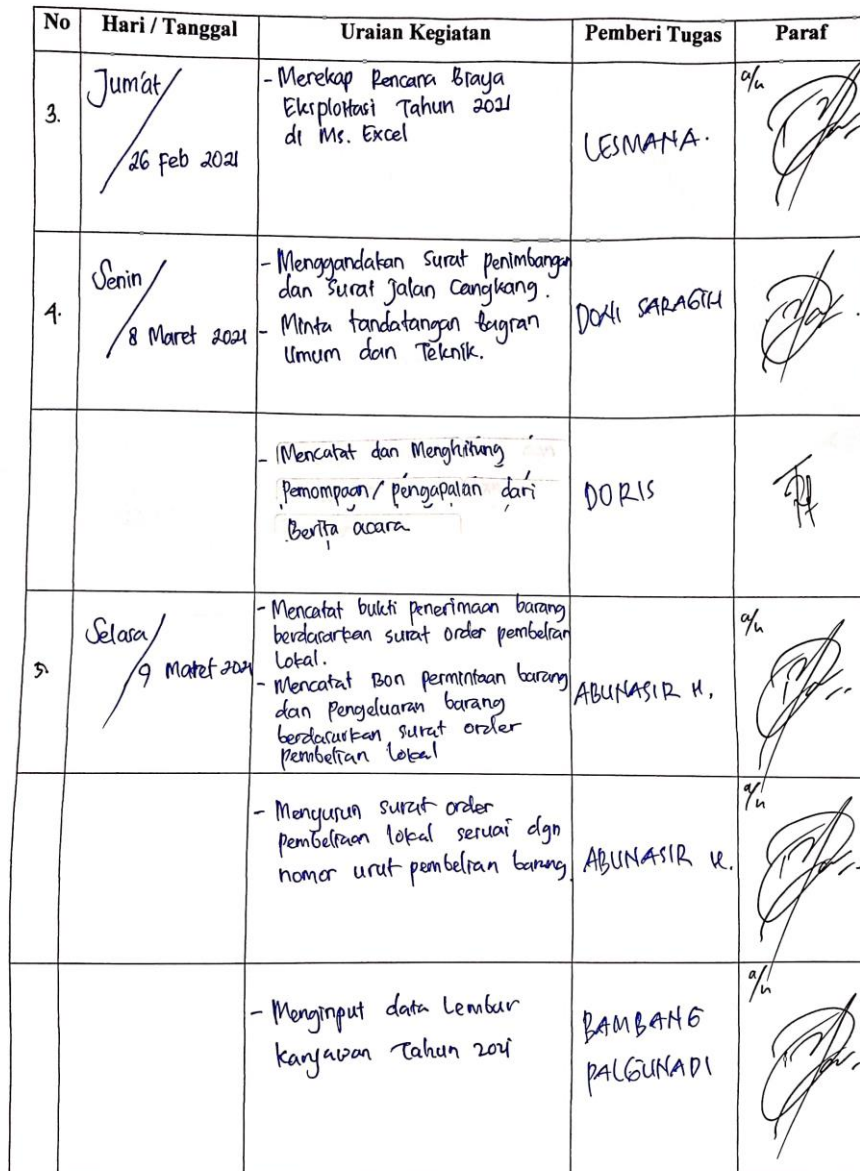 No Hari / Tanggal Uraian Kegiatan Pemberi Tugas Paraf
3.
Jum'at /
26 Feb 2021
- Merekap Rencana Biaya
Eksploitasi Tahun 2021
di Ms. Excel
LESMANA.
a/n
4.
Senin /
8 Maret 2021
- Menggandakan surat penimbangan
dan surat jalan Cangkang.
- Minta tandatangan bagian
Umum dan Teknik.
DONI SARAGIH
- Mencatat dan Menghitung
Pemompaan / pengapalan dari
Berita acara
DORIS
5.
Selasa /
9 Maret 2021
- Mencatat bukti penerimaan barang
berdasarkan surat order pembelian
Lokal.
- Mencatat Bon permintaan barang
dan pengeluaran barang
berdasarkan surat order
pembelian lokal
ABUNASIR H.
a/n
- Menyusun surat order
pembeliaan lokal sesuai dgn
nomor urut pembelian barang
ABUNASIR H.
a/n
- Menginput data Lembur
karyawan Tahun 2021
BAMBANG
PALGUNADI
a/n